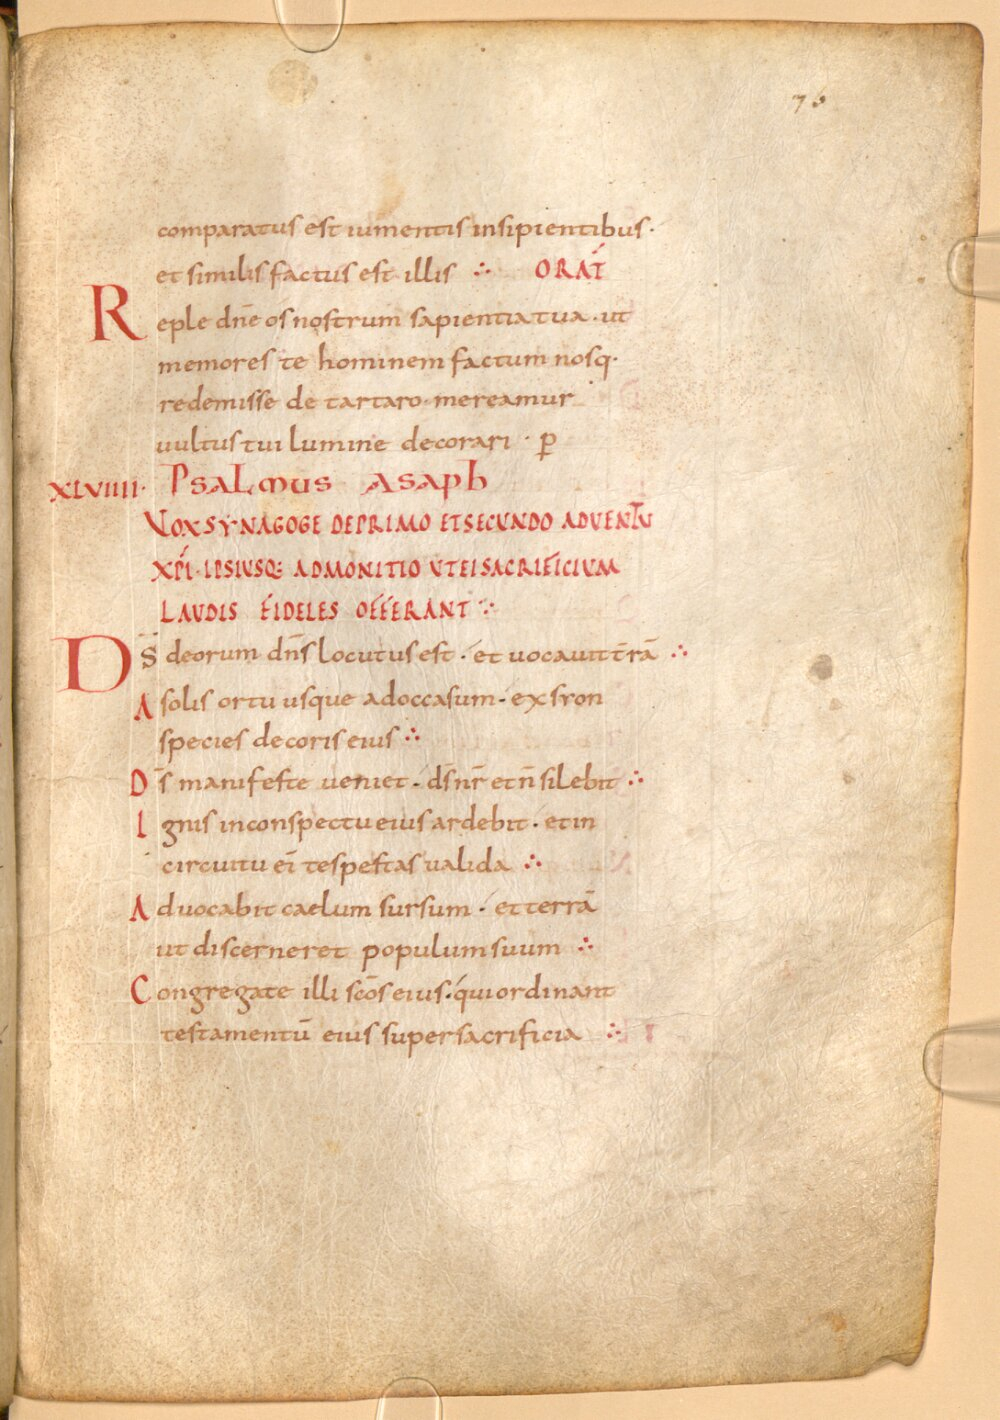 76
comparatus est iumentis insipientibus·
et similis factus est illis ∴ ORAT̄
Reple dn̄e os nostrum sapientia tua · ut
memores te hominem factum nosq·
redemisse de tartaro · mereamur
uultus tui lumine decorari · ꝑ
XLVIIII· PSALMUS ASAPH
VOX SYNAGOGE DE PRIMO ET SECUNDO ADVENTU
XPĪ · IPSIUSQ: ADMONITIO UT EI SACRIFICIUM
LAUDIS FIDELES OFFERANT ∴
DS̄ deorum dn̄s locutus est · et uocauit t̄rā ∴
A solis ortu usque ad occasum · ex syon
species decoris eius ∴
Ds̄ manifeste ueniet · ds̄ nr̄ et n̄ silebit ∴
Ignis in conspectu eius ardebit · et in
circuitu ei̅ tēpestas ualida ∴
Aduocabit caelum sursum · et terrā
ut discerneret populum suum ∴
Congregate illi sc̄os eius · qui ordinant
testamentū eius super sacrificia ∴